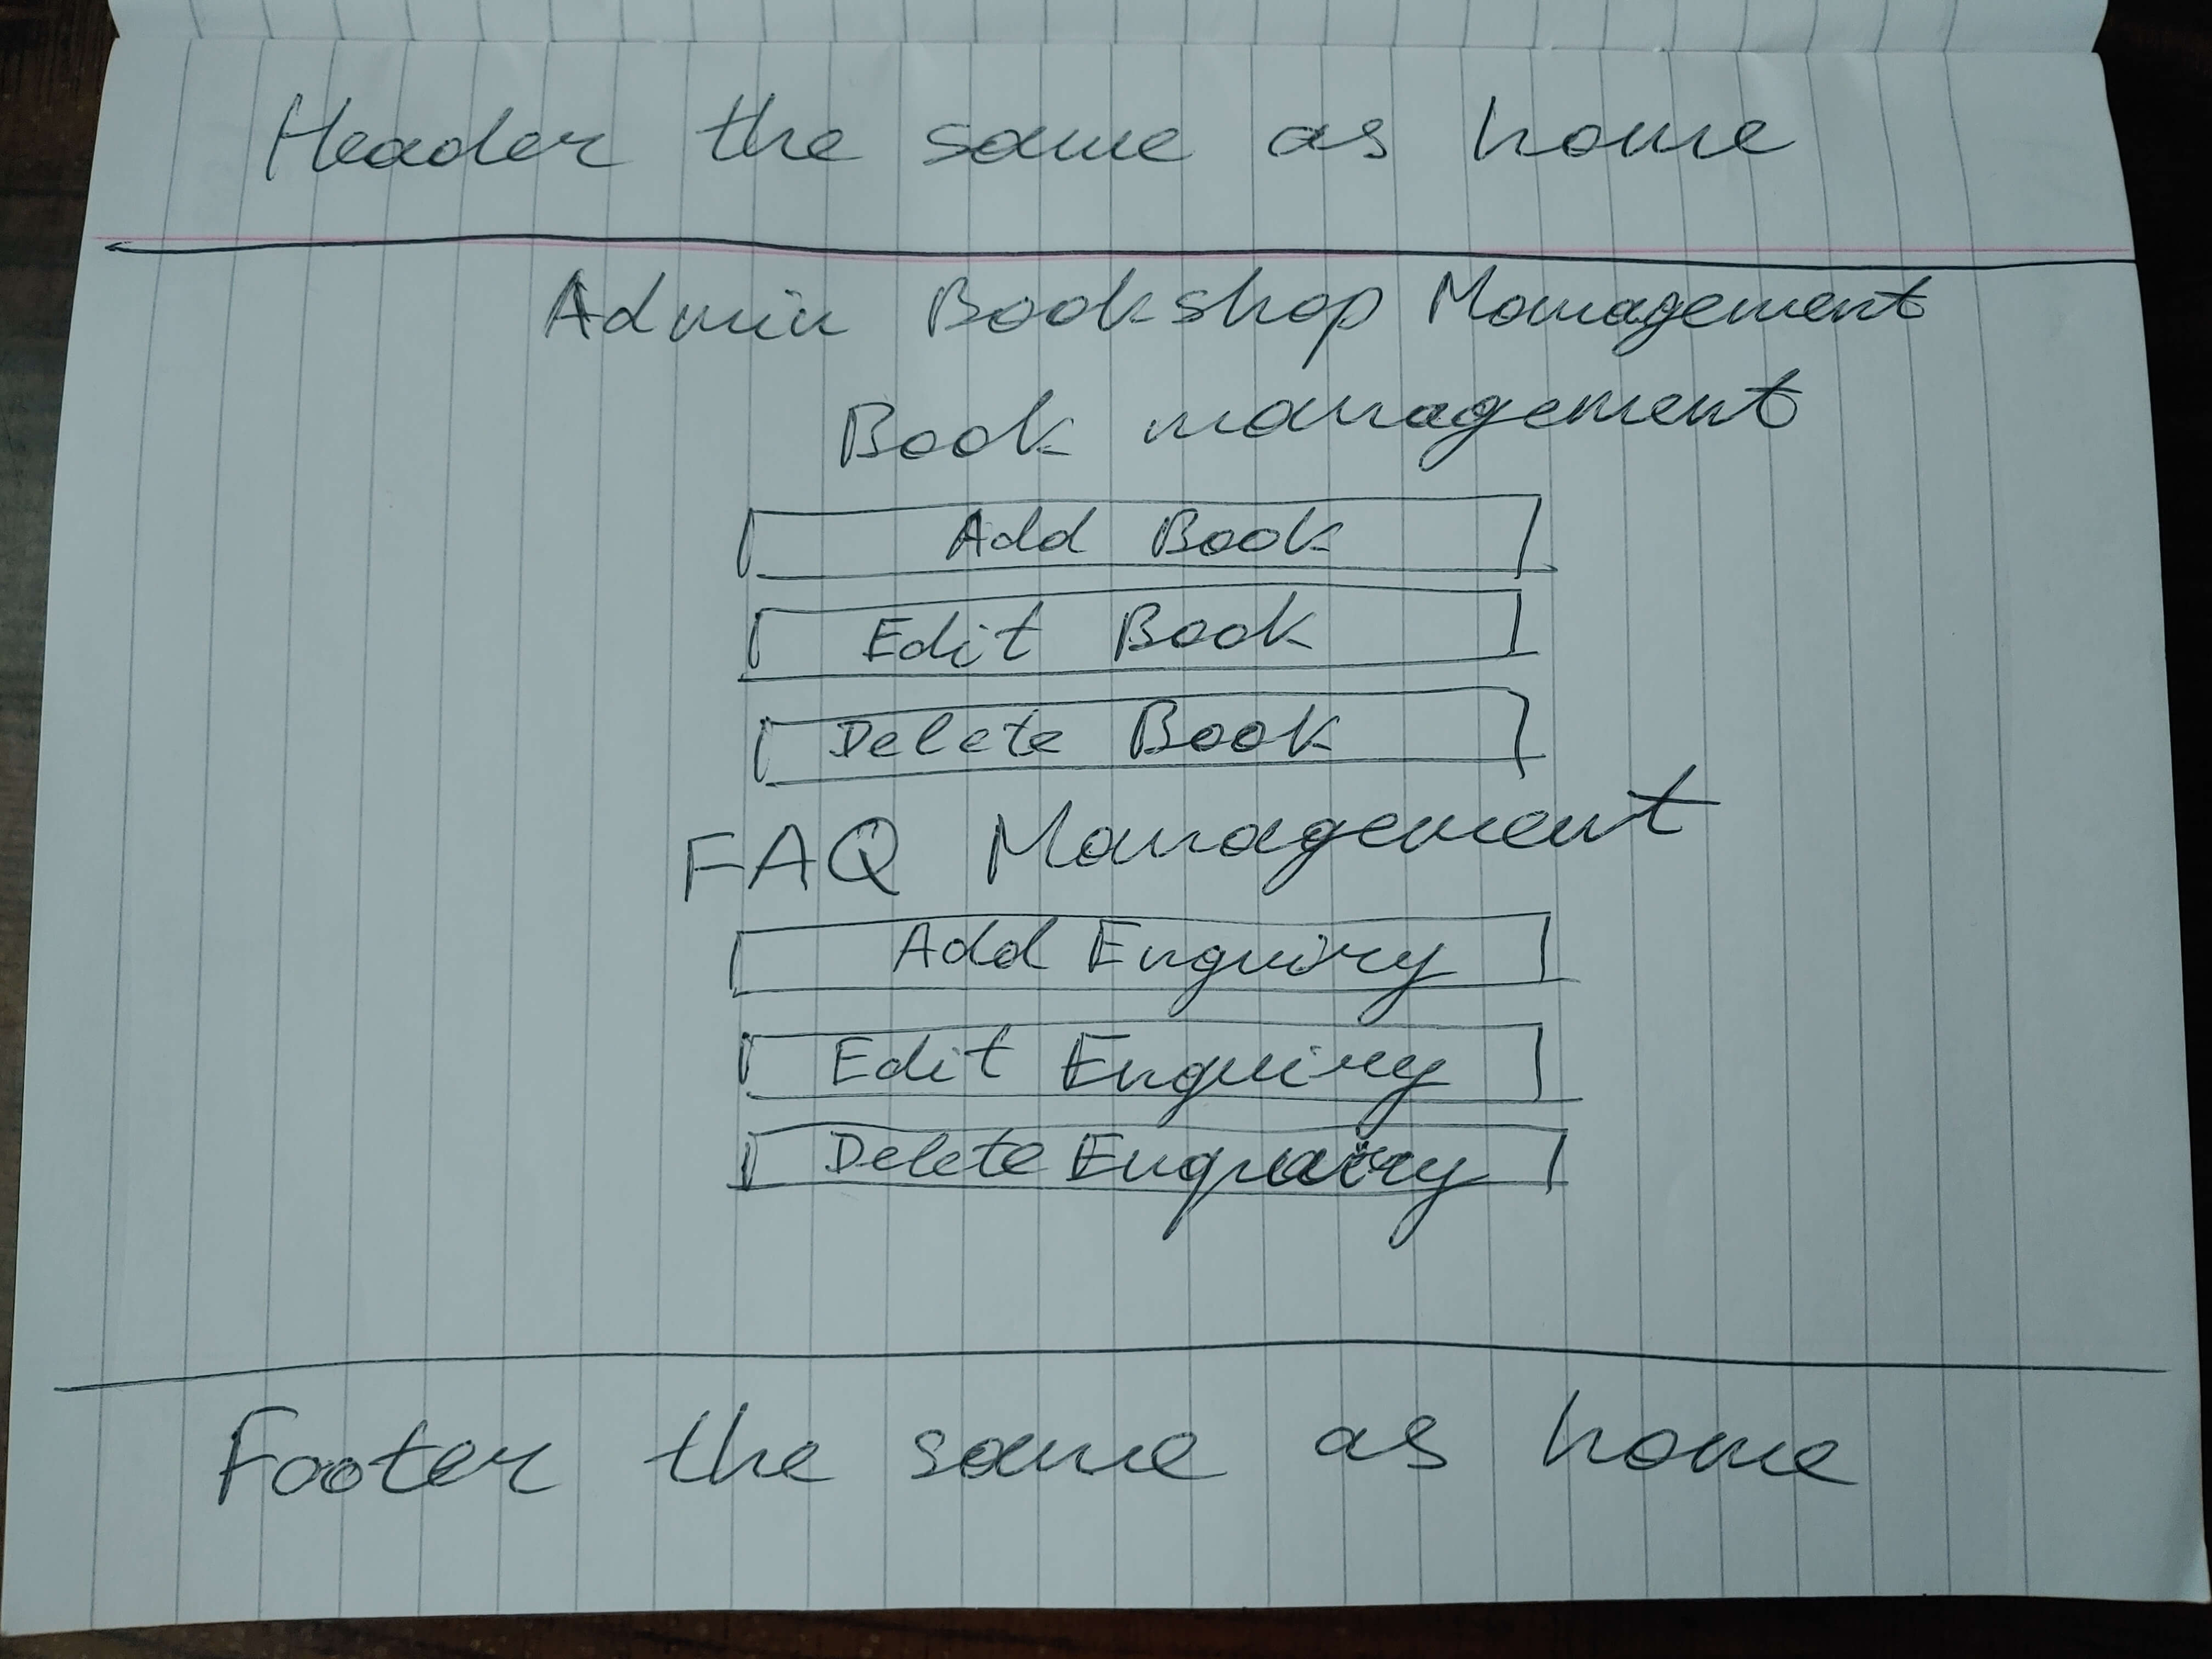 Header the same as home
Admin Bookshop Management
Book management
Add Book
Edit Book
Delete Book
FAQ Management
Add Enquiry
Edit Enquiry
Delete Enquiry
Footer the same as home